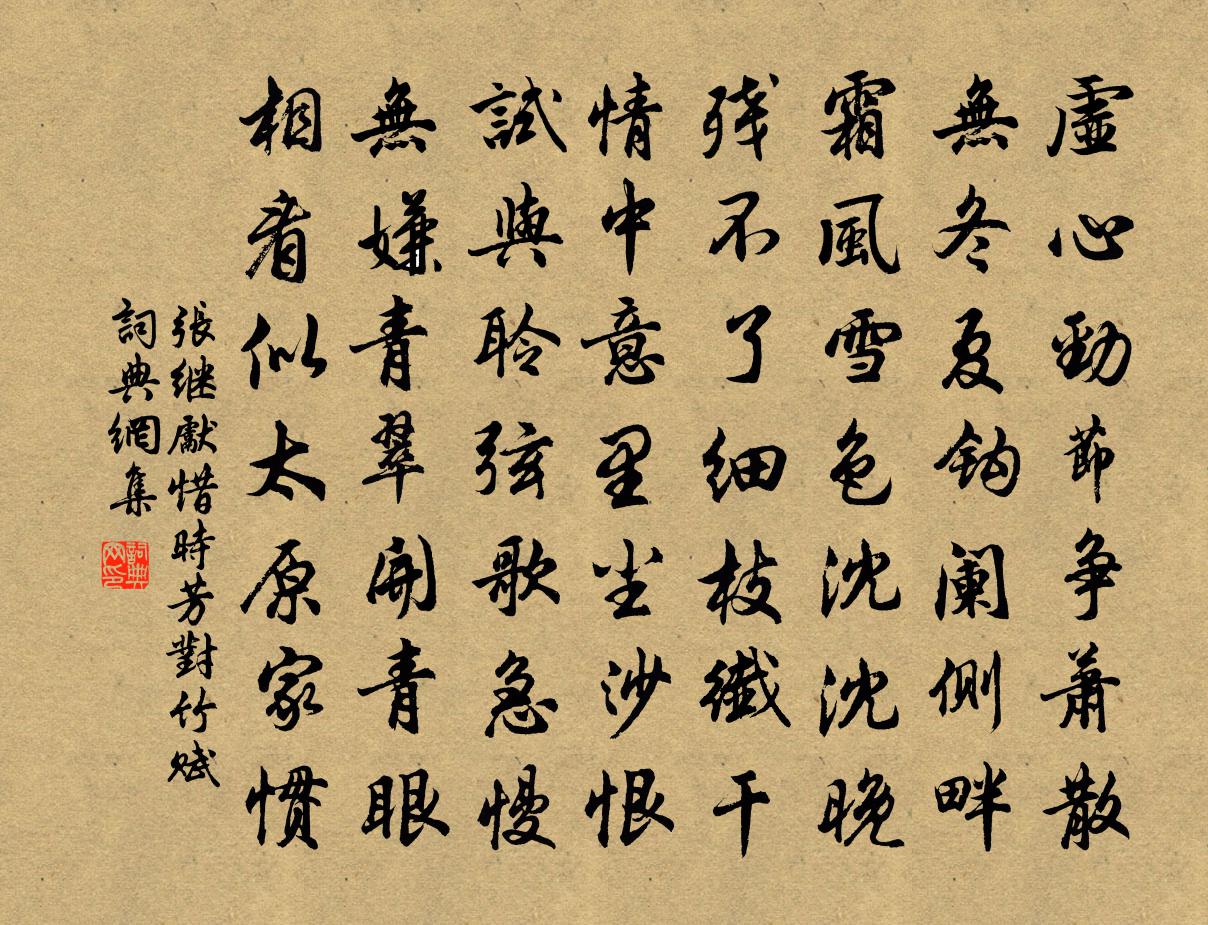 虛心勁節争蕭散
無冬夏鈎闌側畔
霜風雪色沈沈晚
残不了細枝纖干
情中意里尘沙恨
試與聆弦歌急慢
無嫌青翠開青眼
相看似太原家慣
張继獻惜時芳對竹賦
詞典網集
詞典網印